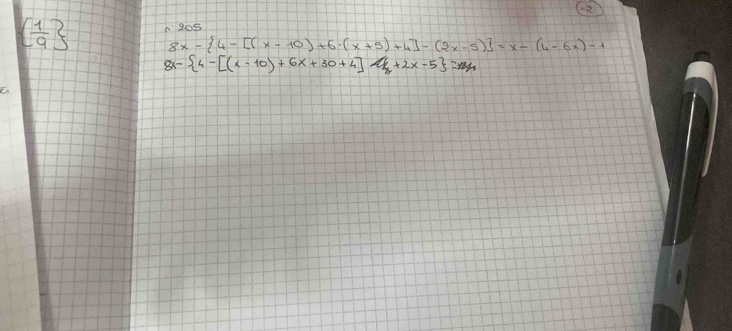 {1/9}
(-2)
n 205
8x - {4 - [(x - 10) + 6·(x + 5) + 4] - (2x - 5)} = x - (4 - 6x) - 1
8x - {4 - [(x - 10) + 6x + 30 + 4] + 2x - 5} =